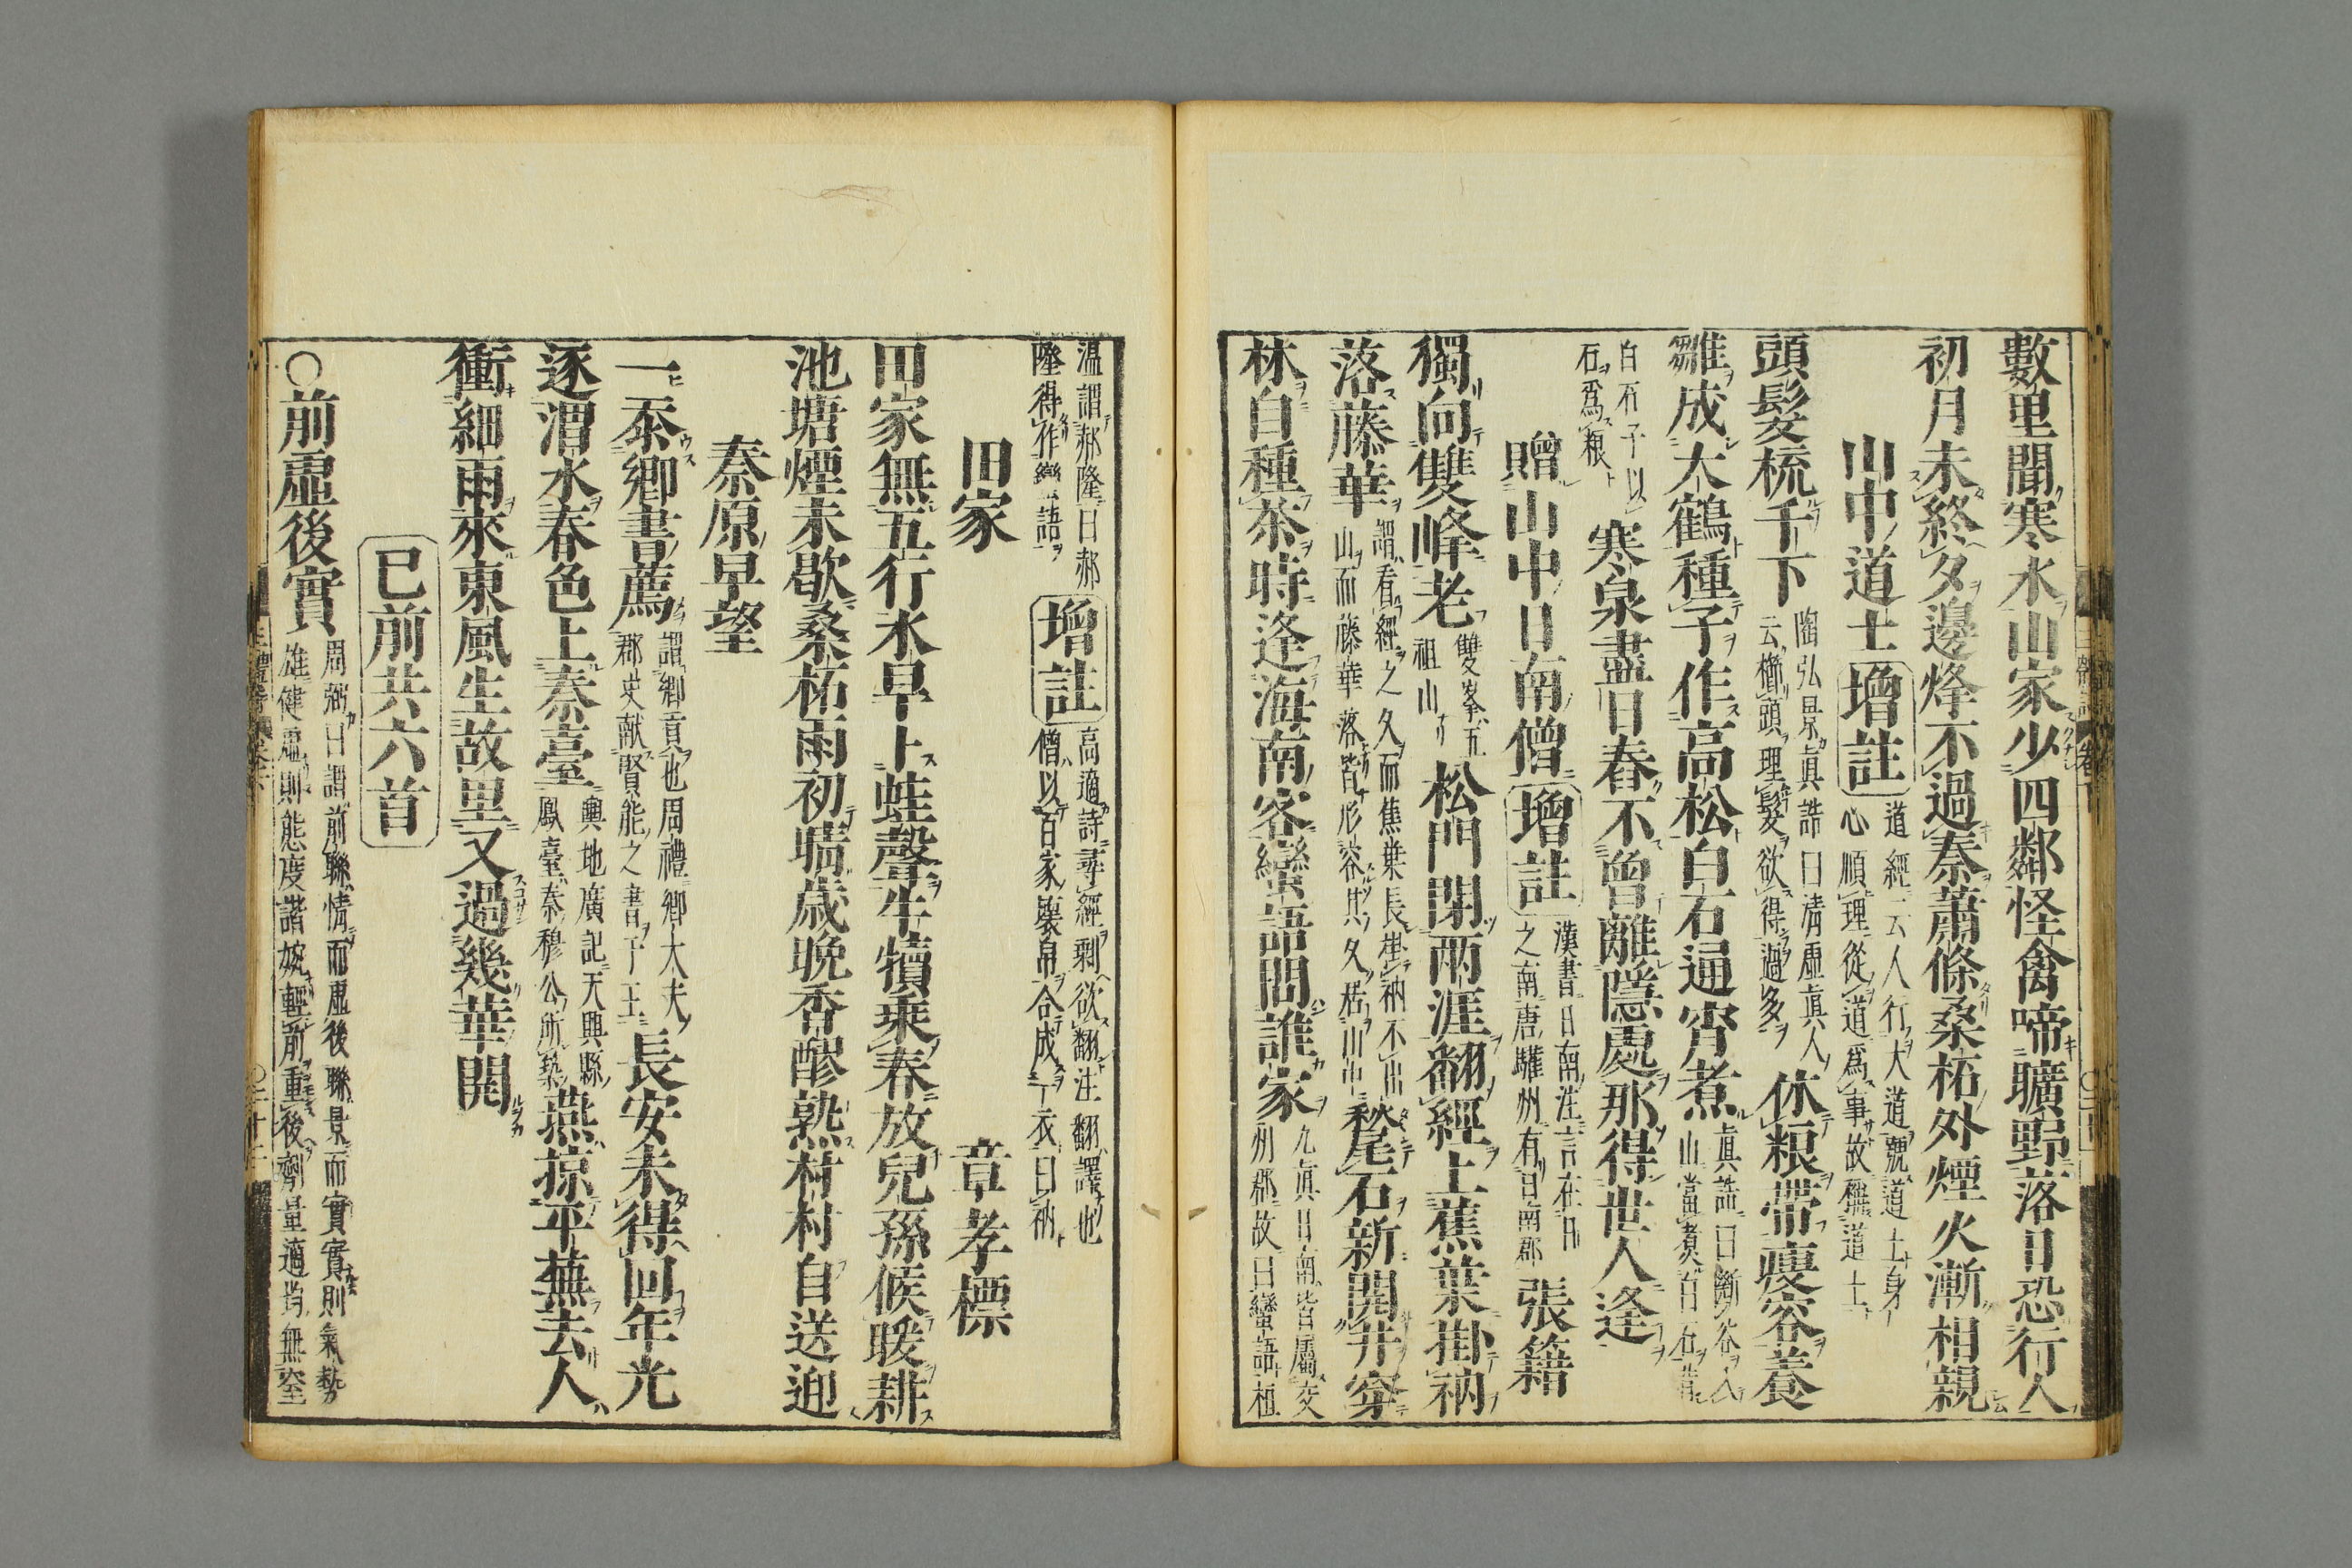 數里聞寒水山家少四鄰怪禽啼曠野落日恐行人
初月未終夕邊烽不過秦蕭條桑柘外煙火漸相親
山中道士 增註 道經云人行大道號道士身
心順理從道爲事故稱道士
頭髮梳千下 陶弘景眞誥曰清虛眞人
云櫛頭理髮欲得過多 休粮帶瘦容養
雛成大鶴種子作高松白石通宵煮 眞誥曰斷谷入
山當煮白石昔
白石子以
石爲粮 寒泉盡日舂不曾離隱處那得世人逢
贈山中日南僧 增註 漢書日南注言在日
之南唐驩州有日南郡 張籍
獨向雙峰老 雙峯五
祖山 松門閉兩涯翻經上蕉葉掛衲
落藤華 謂看經之久而蕉葉長掛衲不出
山而藤華落皆形容其久居山中 甃石新開井穿
林自種茶時逢海南客蠻語問誰家 九眞日南皆屬交
州郡故曰蠻語桓
温謂郝隆曰郝
隆得作蠻語 增註 高適詩尋經剩欲翻注翻譯也
僧以百家壞帛合成一衣曰衲
田家 章孝標
田家無五行水旱卜蛙聲牛犢乘春放兒孫候暖耕
池塘煙未歇桑柘雨初晴歳晩香醪熟村村自送迎
秦原早望
一忝鄉書薦 謂鄉貢也周禮鄉大夫
郡吏献賢能之書于王 長安未得回年光
逐渭水春色上秦臺 輿地廣記天興縣
鳳臺秦穆公所築 燕掠平蕪去人
衝細雨來東風生故里又過幾華開
已前共六首
○前虛後實 周弼曰謂前聯情而虛後聯景而實實則氣勢
雄健虛則態度諧婉輕前重後劑量適均無窒